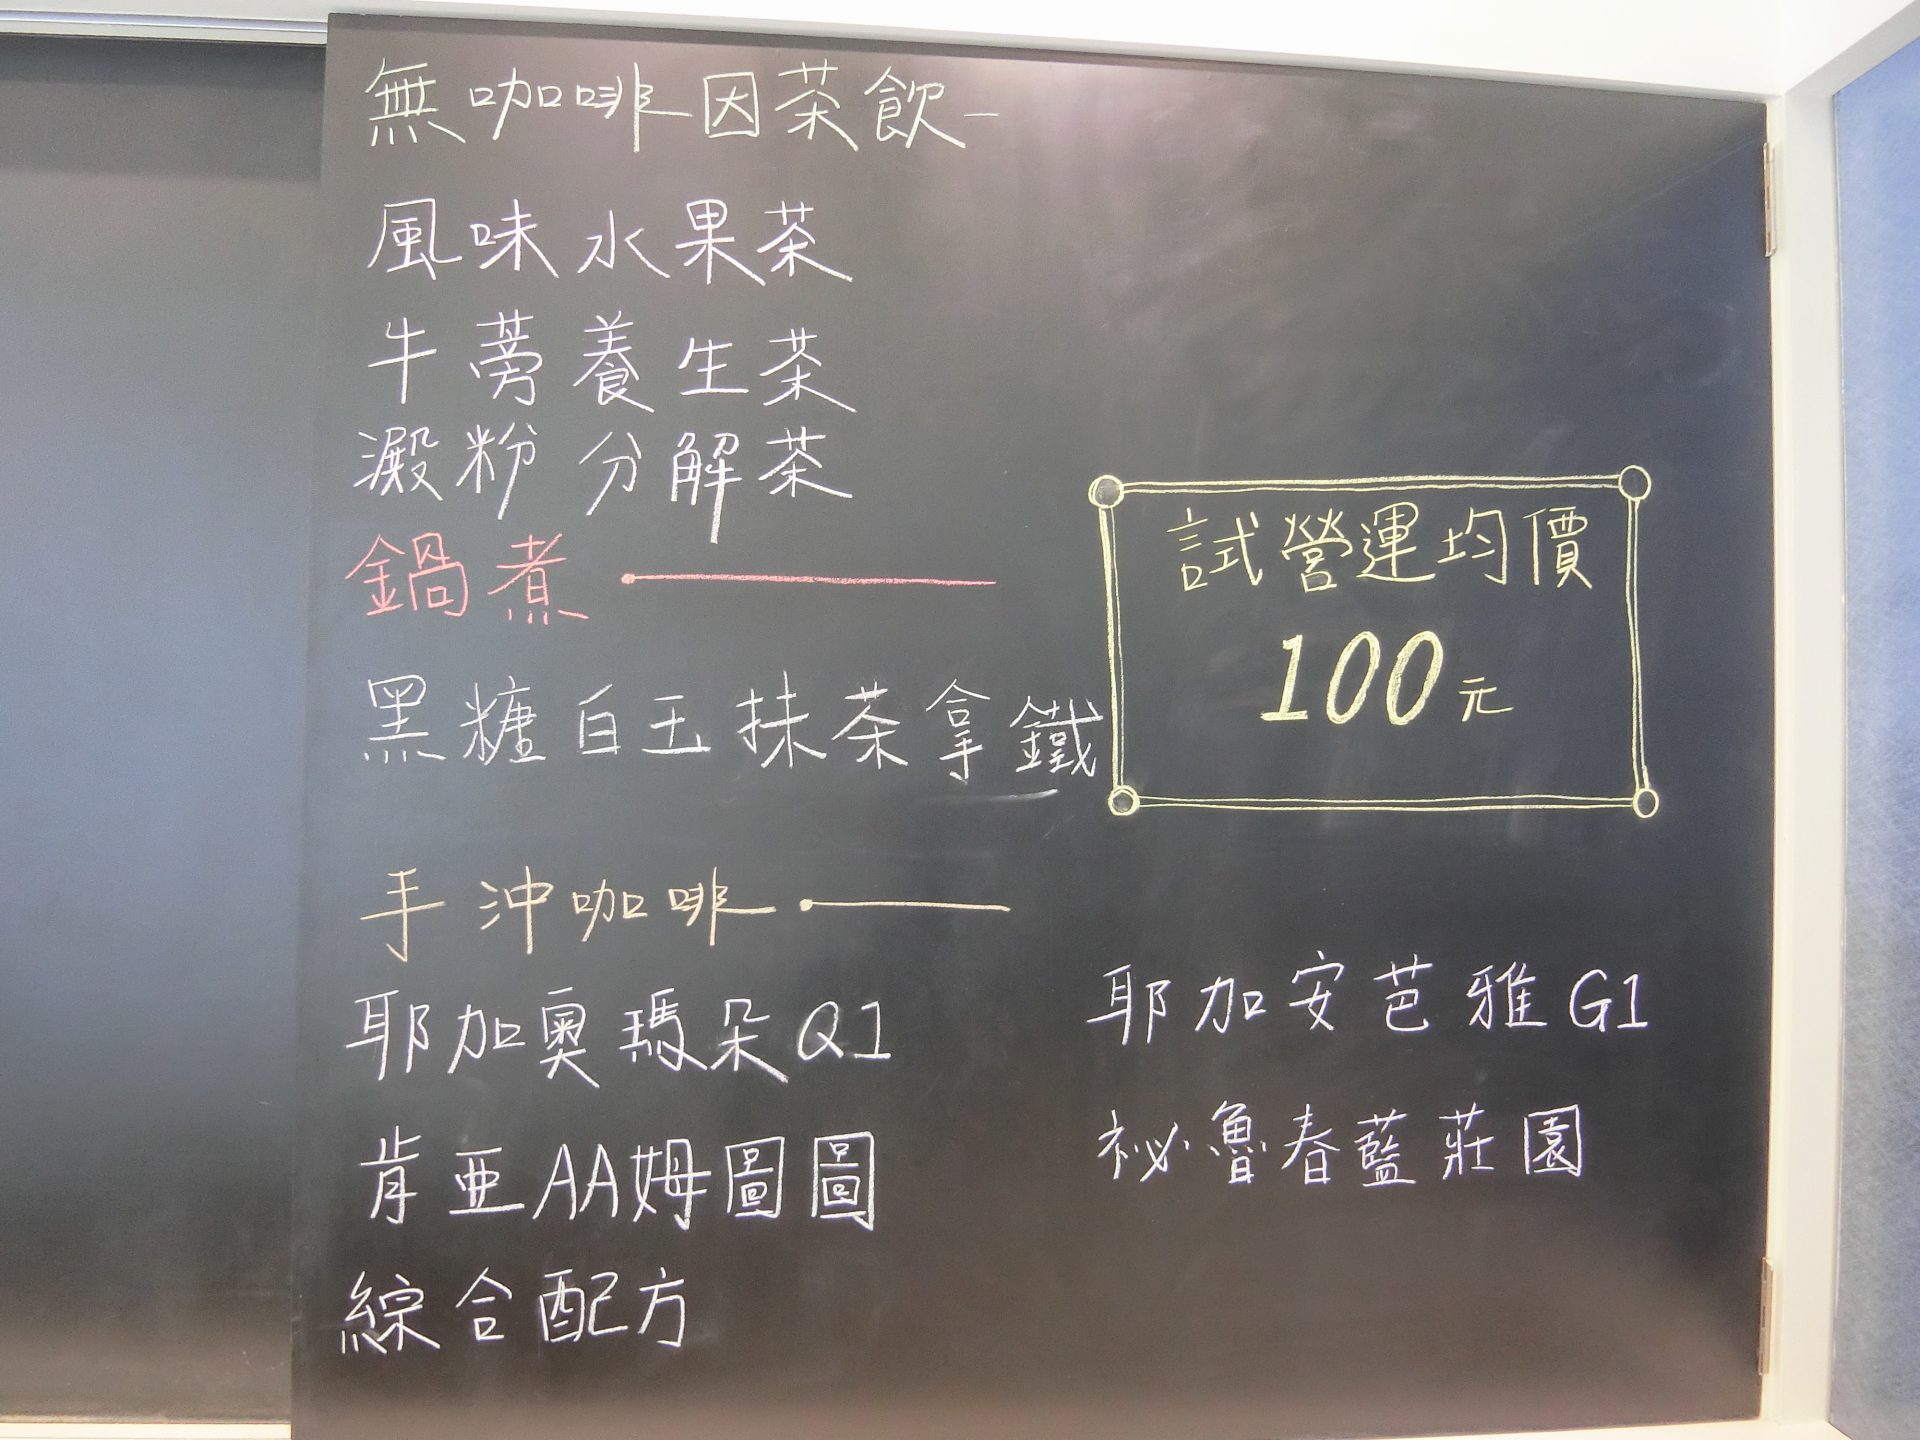 無咖啡因茶飲
風味水果茶
牛蒡養生茶
澱粉分解茶
鍋煮
黑糖白玉抹茶拿鐵
試營運均價
100元
手沖咖啡
耶加奧瑪朵Q1
耶加安芭雅G1
肯亞AA姆圖圖
祕魯春藍莊園
綜合配方